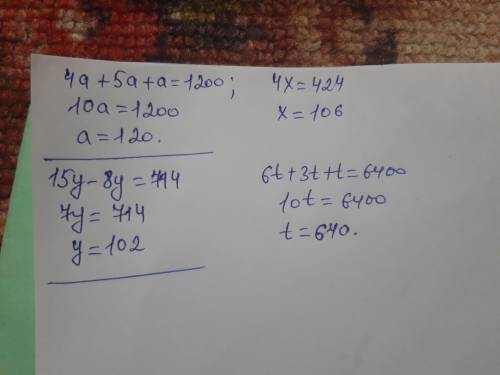 4a+5a+a=1200;
10a=1200
a=120.
4x=424
x=106
15y-8y=714
7y=714
y=102
6t+3t+t=6400
10t=6400
t=640.